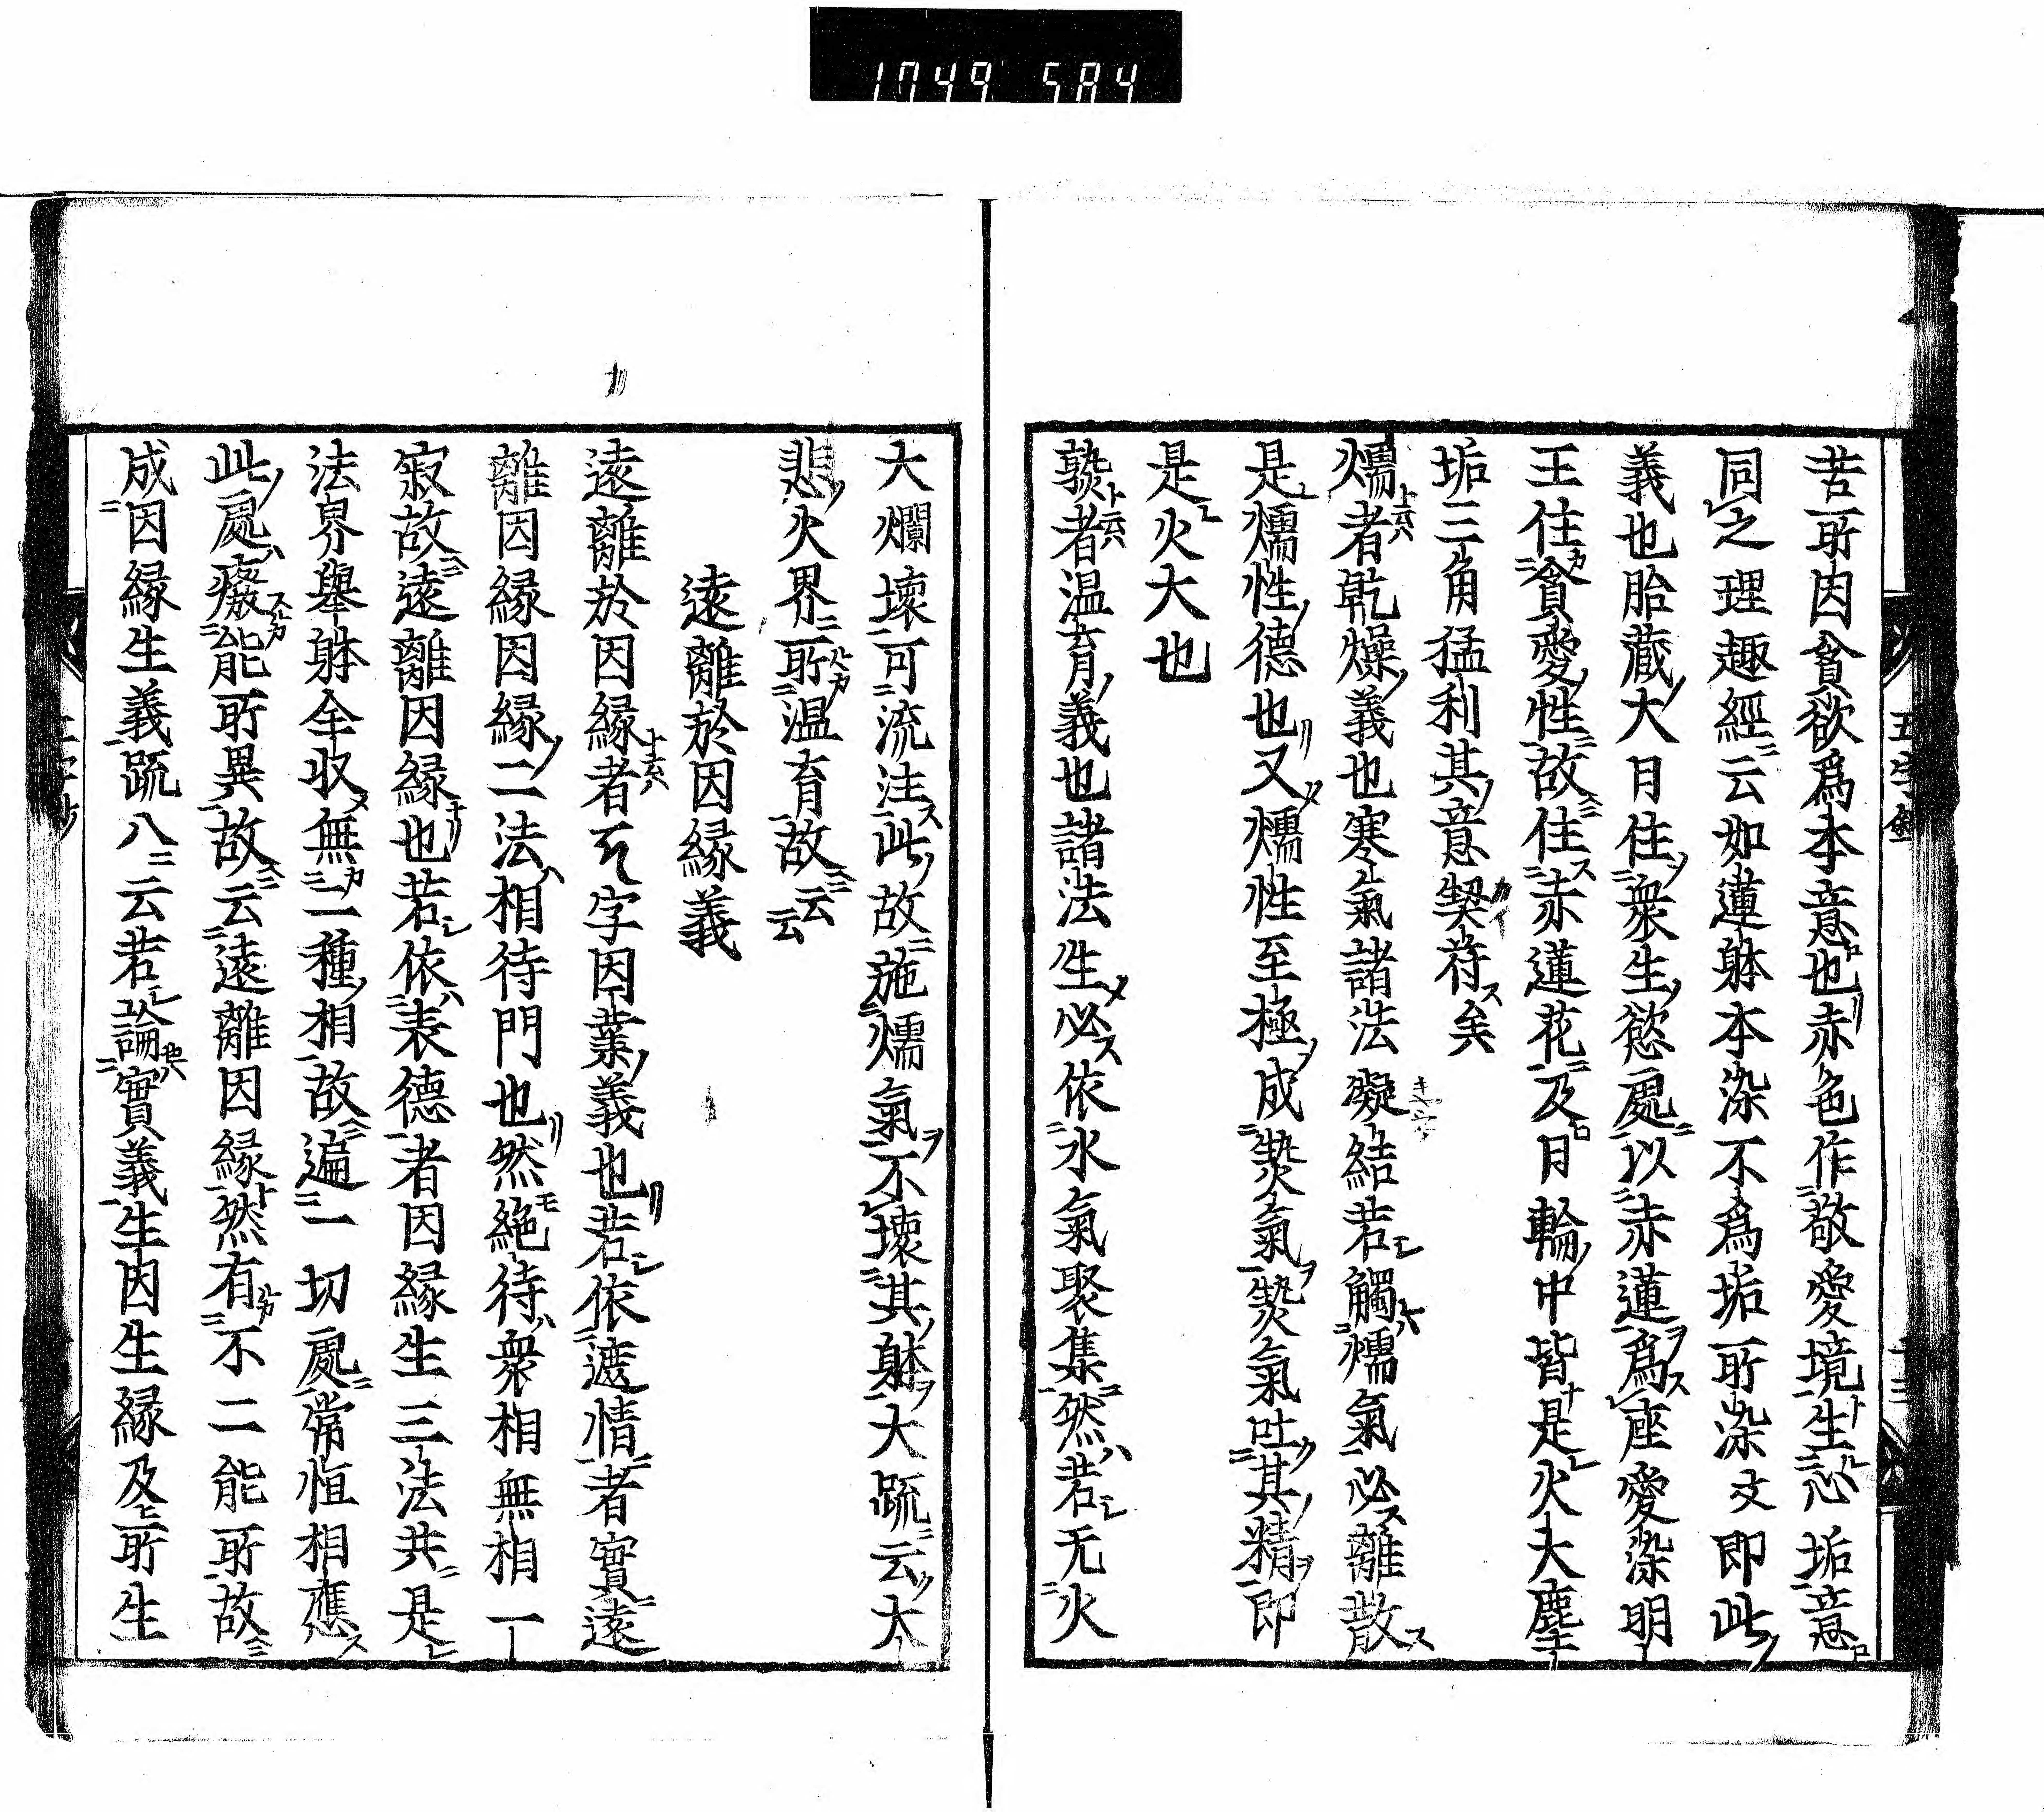 1749 584
苦所因貪欲爲本意也赤色作敬愛境生忄心垢意
同之理趣經云如蓮躰本染不爲垢所染文即此
義也胎藏大月住衆生慾處以赤蓮爲座愛染明
王住貪愛性故住赤蓮花及月輪中皆是火大塵
垢三角猛利其意契符矣
燸者乾燥義也寒氣諸法凝結若觸燸氣必離散
是燸性德也又燸性至極成㷟氣㷟氣吐其精即
是火大也
㷟者温育義也諸法生必依水氣聚集然若无火
大爛壞可流注此故施燸氣不壞其躰大疏云大
悲火界所温育故云云
遠離於因縁義
遠離於因縁者𑖮字因業義也若依遮情者實遠
離因縁因縁二法相待門也然絶待衆相無相一
寂故遠離因縁也若依表德者因縁生三法共是
法界舉躰全收無二種相故遍一切處常恒相應
此處癈能所異故云遠離因縁然有不二能所故
成因縁生義疏八云若論實義生因生縁及所生